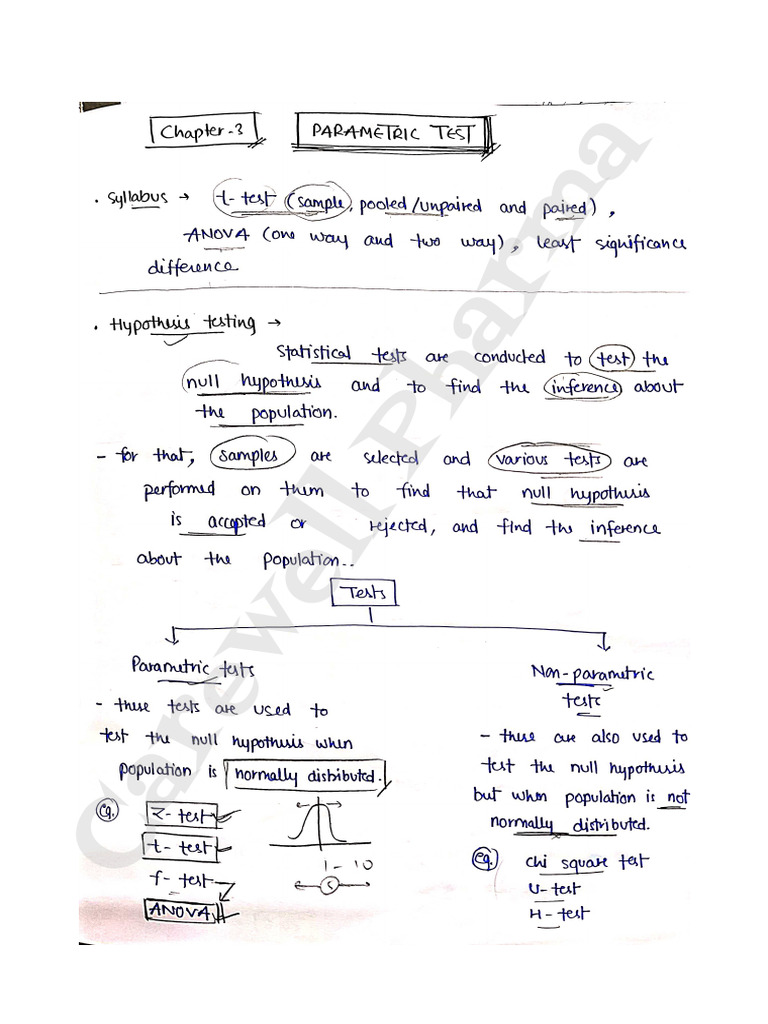 Chapter-3 PARAMETRIC TEST
. Syllabus → t-test (sample, pooled/unpaired and paired),
ANOVA (one way and two way), least significance
difference
. Hypothesis testing →
Statistical tests are conducted to test the
null hypothesis and to find the inference about
the population.
- for that, samples are selected and various tests are
performed on them to find that null hypothesis
is accepted or rejected, and find the inference
about the population..
Tests
Parametric tests
- these tests are used to
test the null hypothesis when
population is normally distributed.
eg. Z-test
t-test
f-test
ANOVA
1-10
5
Non-parametric
tests
- these are also used to
test the null hypothesis
but when population is not
normally distributed.
eg. chi square test
U-test
H-test
Carewell Pharma